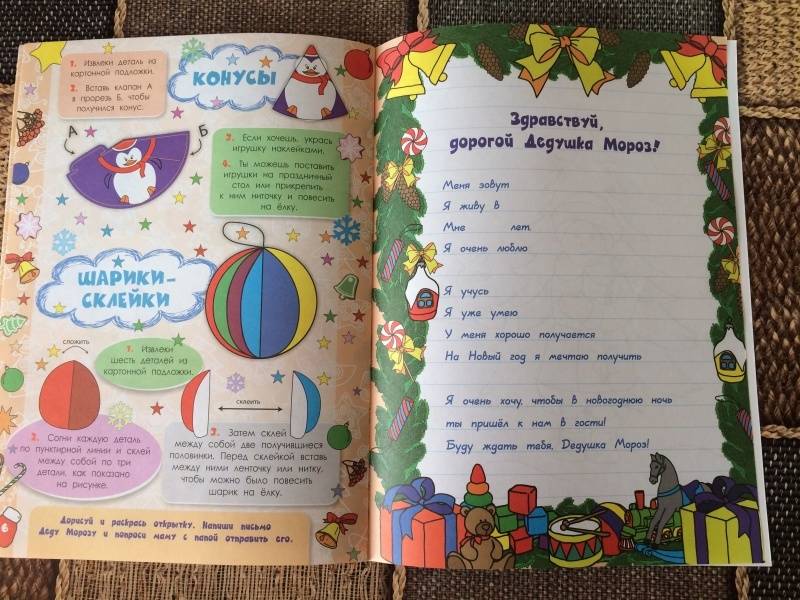 1. Извлеки деталь из
картонной подложки.
2. Вставь клапан А
в прорезь Б, чтобы
получился конус.
КОНУСЫ
А
Б
3. Если хочешь, укрась
игрушку наклейками.
4. Ты можешь поставить
игрушки на праздничный
стол или прикрепить
к ним ниточку и повесить
на ёлку.
ШАРИКИ-
СКЛЕЙКИ
сложить
1. Извлеки
шесть деталей из
картонной подложки.
склеить
2. Согни каждую деталь
по пунктирной линии и склей
между собой по три
детали, как показано
на рисунке.
3. Затем склей
между собой две получившиеся
половинки. Перед склейкой вставь
между ними ленточку или нитку,
чтобы можно было повесить
шарик на ёлку.
Дорисуй и раскрась открытку. Напиши письмо
Деду Морозу и попроси маму с папой отправить его.
6
Здравствуй,
дорогой Дедушка Мороз!
Меня зовут
Я живу в
Мне лет.
Я очень люблю
Я учусь
Я уже умею
У меня хорошо получается
На Новый год я мечтаю получить
Я очень хочу, чтобы в новогоднюю ночь
ты пришёл к нам в гости!
Буду ждать тебя, Дедушка Мороз!